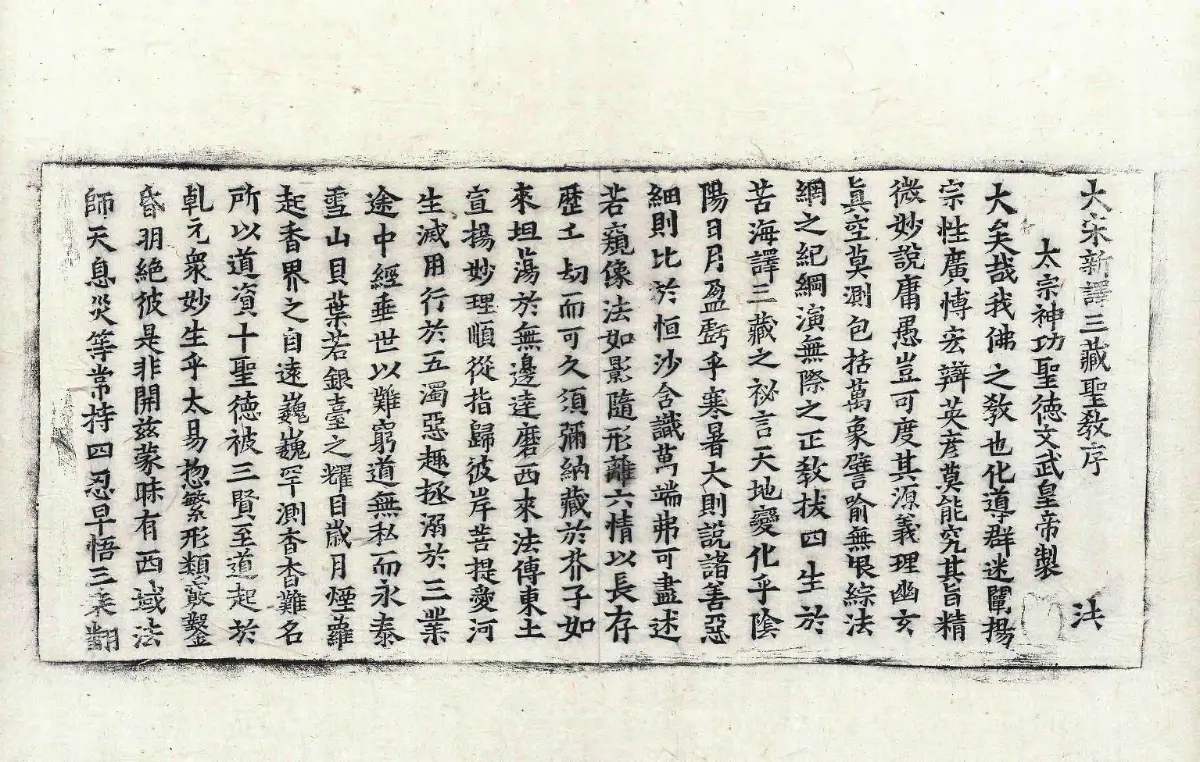 大宋新譯三藏聖敎序
法
太宗神功聖德文武皇帝製
大矣哉我佛之敎也化導群迷闡揚
宗性廣博宏辯英彦莫能究其旨精
微妙說庸愚豈可度其源義理幽玄
眞空莫測包括萬象譬喩無垠綜法
網之紀綱演無際之正敎拔四生於
苦海譯三藏之祕言天地變化乎陰
陽日月盈虧乎寒暑大則說諸善惡
細則比於恒沙含識萬端弗可盡述
若窺像法如影隨形離六情以長存
歷千劫而可久須彌納藏於芥子如
來坦蕩於無邊達磨西來法傳東土
宣揚妙理順從指歸彼岸菩提愛河
生滅用行於五濁惡趣拯溺於三業
途中經垂世以難窮道無私而永泰
雪山貝葉若銀臺之耀目歲月煙蘿
起香界之自遠巍巍罕測杳杳難名
所以道資十聖德被三賢至道起於
乹元衆妙生乎太易惣繁形類竅鑿
昏明絶彼是非開兹蒙昧有西域法
師天息災等常持四忍早悟三乘翻